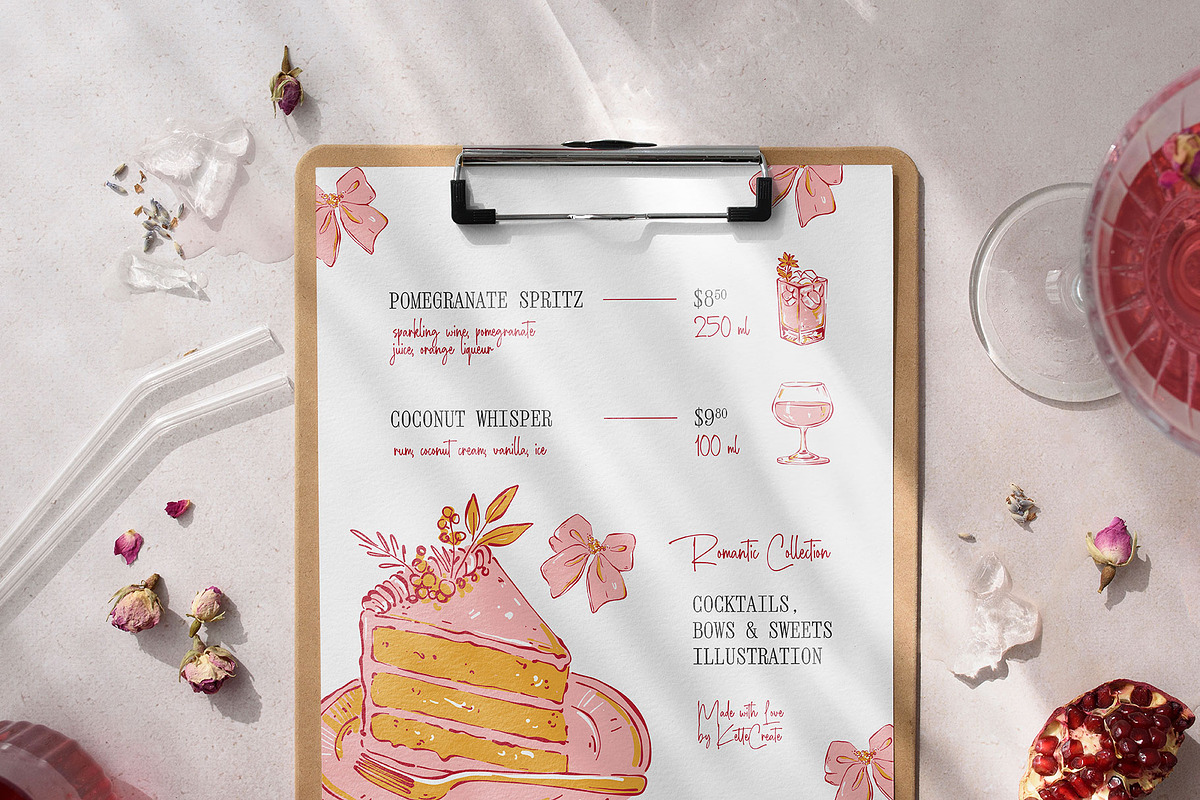 POMEGRANATE SPRITZ $8⁵⁰
sparkling wine, pomegranate 250 ml
juice, orange liqueur
COCONUT WHISPER $9⁸⁰
rum, coconut cream, vanilla, ice 100 ml
Romantic Collection
COCKTAILS,
BOWS & SWEETS
ILLUSTRATION
Made with Love
by KetleCreate